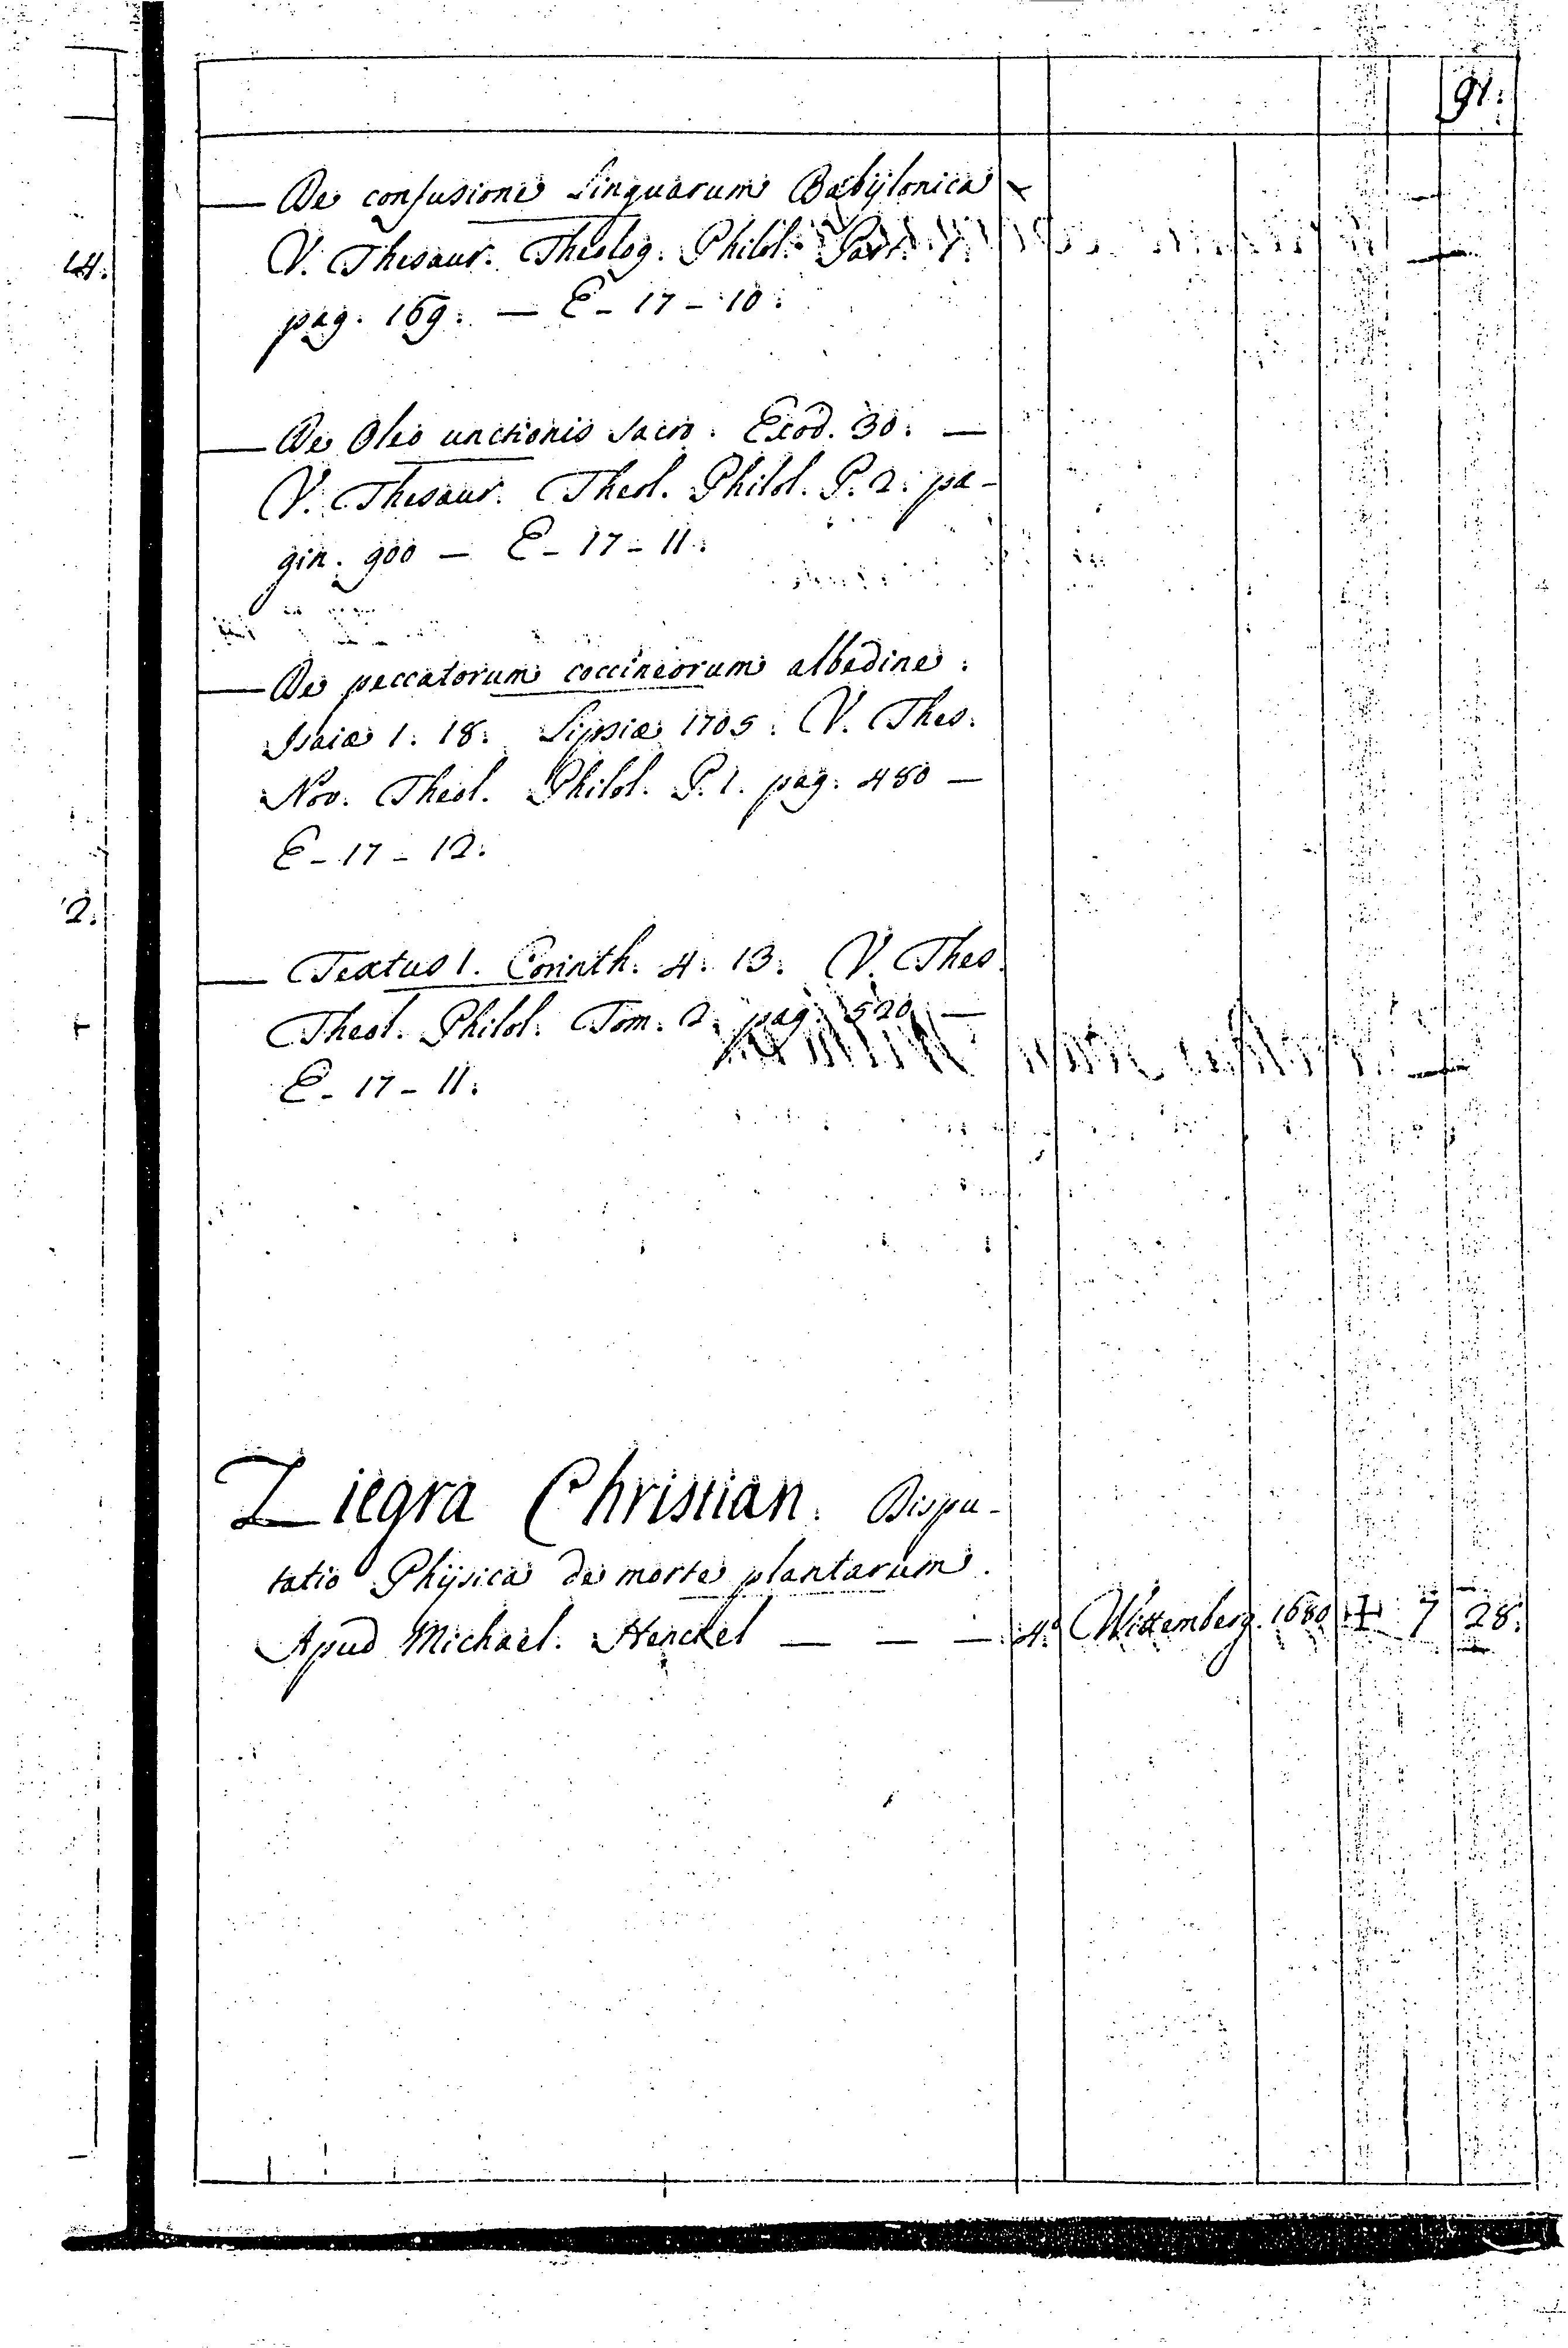 91.
— De confusione Linguarum Babijlonica
V. Thesaur. Theolog. Philol. Part. 1.
pag. 169. — E - 17 - 10.
— De Oleo unctionis sacro. Exod. 30. —
V. Thesaur. Theol. Philol. P. 2. pa-
gin. 900 — E - 17 - 11.
— De peccatorum coccineorum albedine.
Isaiæ 1. 18. Lipsiæ 1705. V. Thes.
Nov. Theol. Philol. P. 1. pag. 480 —
E - 17 - 12.
— Textus 1. Corinth. 4. 13. V. Thes.
Theol. Philol. Tom. 2. pag. 520 —
E - 17 - 11.
Ziegra Christian. Dispu-
tatio Phijsica de morte plantarum.
Apud Michael. Henckel — — — 4.º Wittemberg. 1680 ✝ 7 28.
14.
2.